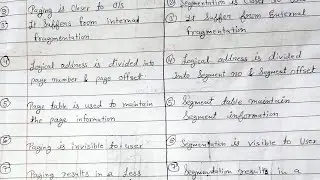 ② Paging is Closer to O/S
3) It Suffers from Internal
fragmentation
④ Logical address is divided into
page number & page offset
⑤ Page table is used to maintain
the page information
⑥ Paging is invisible to user
⑦ Paging results in a less
② Segmentation is Closer to User
3) It Suffer from External
fragmentation
④ Logical address is divided
Into Segment no & Segment offset
⑤ Segment table maintain
Segment information
⑥ Segmentation is visible to User
⑦ Segmentation results in a